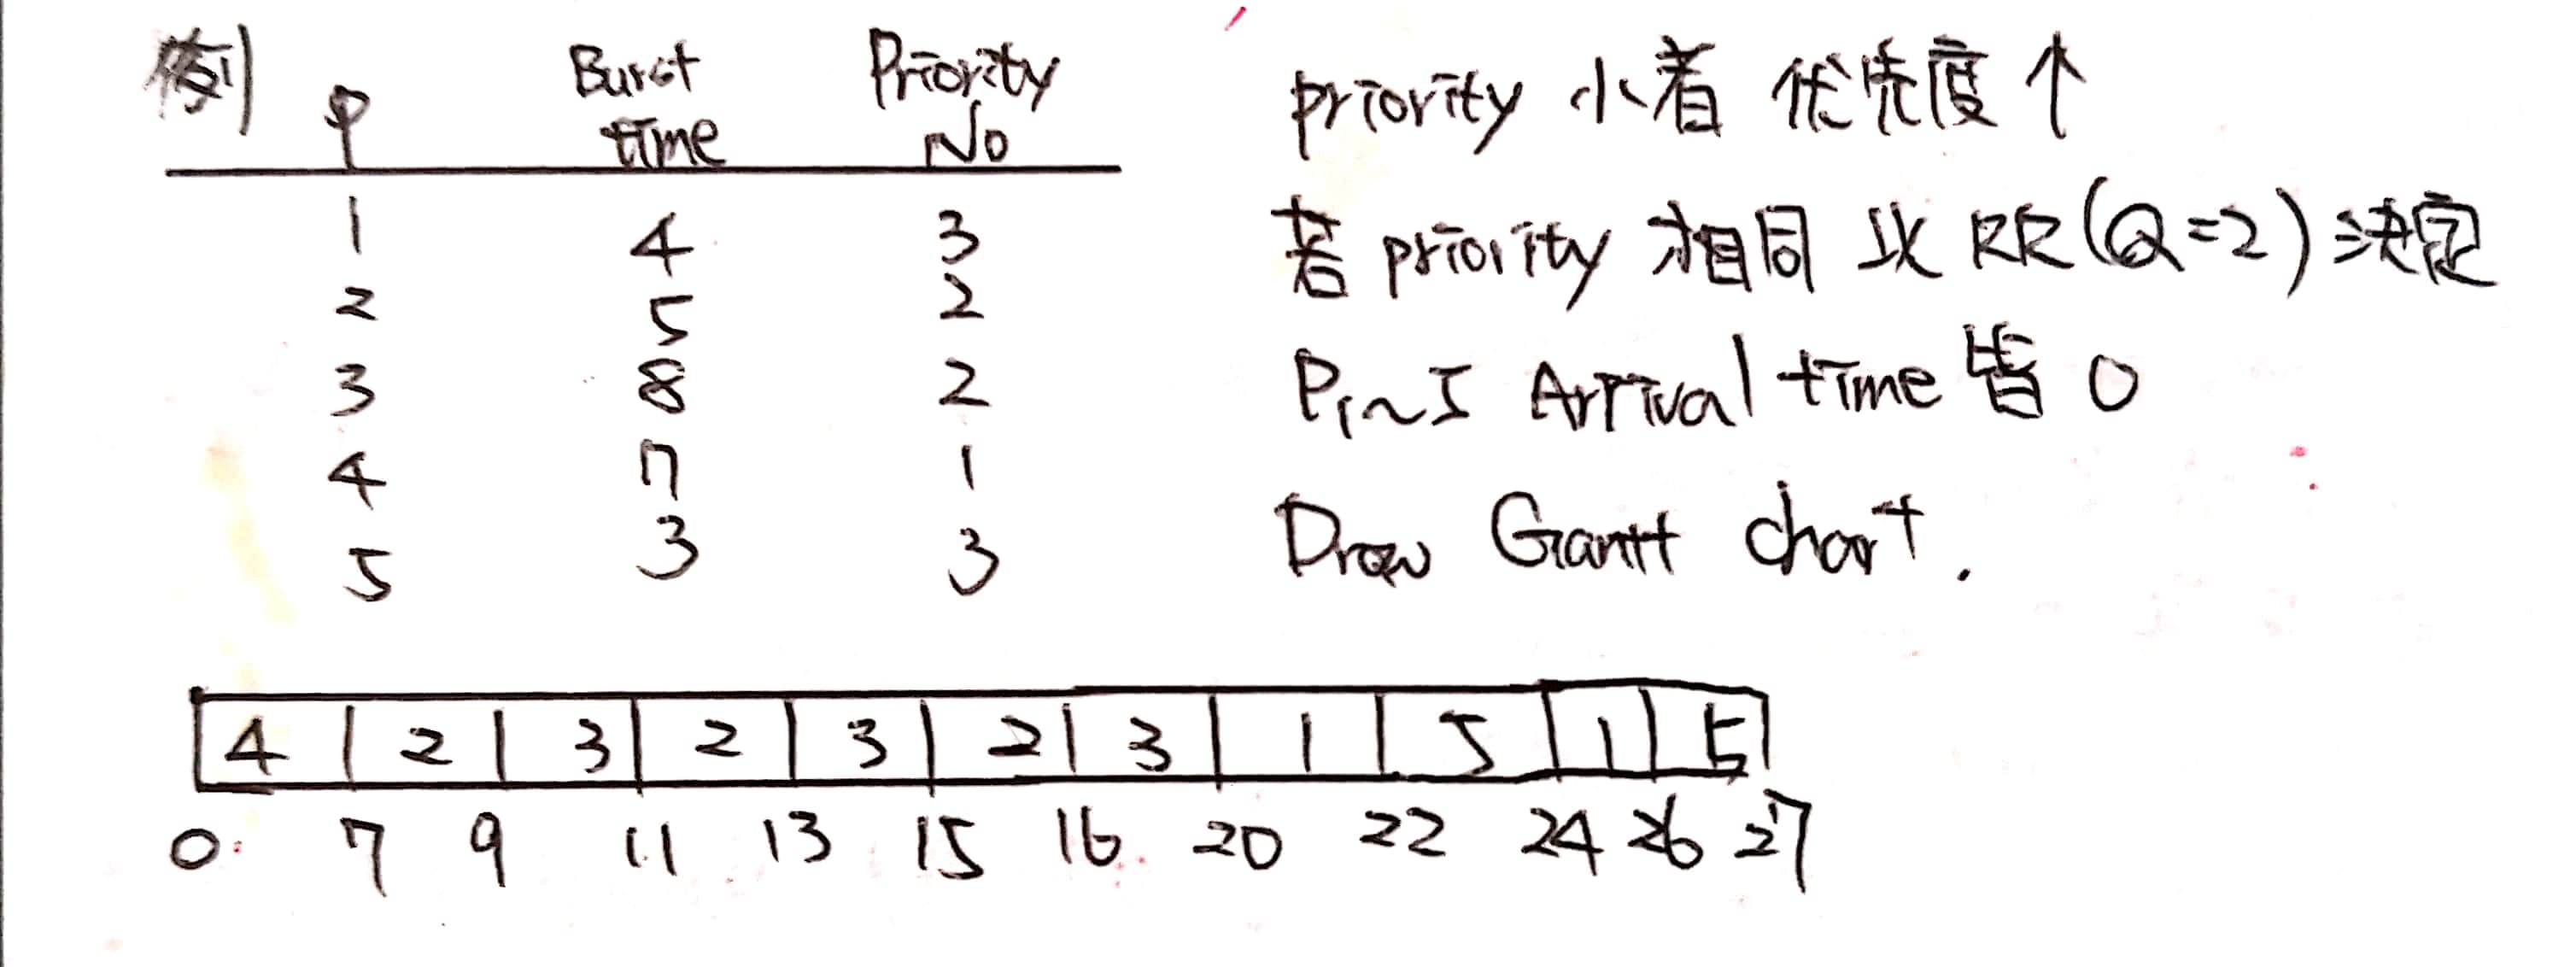 例
P Burst time Priority No
1 4 3
2 5 2
3 8 2
4 7 1
5 3 3
priority 小者 优先度 ↑
若 priority 相同 以 RR(Q=2) 決定
P1~5 Arrival time 皆 0
Draw Gantt chart.
4 2 3 2 3 2 3 1 5 1 5
0 7 9 11 13 15 16 20 22 24 26 27